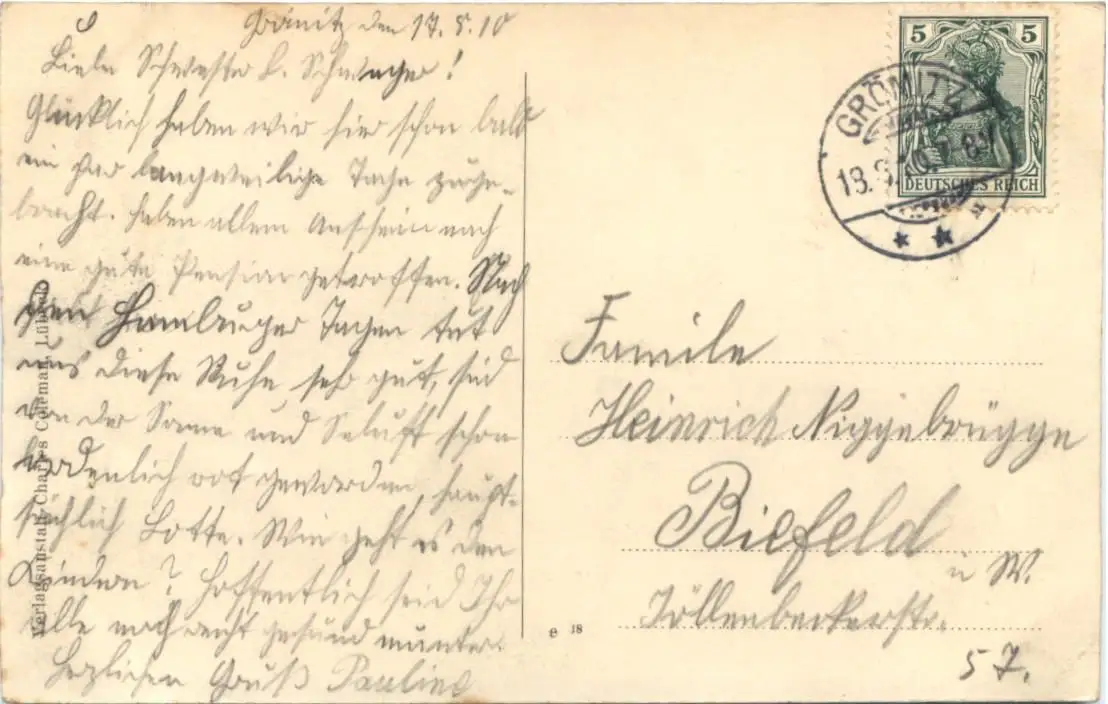 Grömitz den 17. 8. 10
Liebe Schwester u. Schwager!
Glücklich haben wir hier schon bald
ein par langweilige Tage zuge-
bracht. haben allem Anschein nach
eine gute Pension getroffen. Nach
den Hamburger Tagen tut
uns diese Ruhe sehr gut, sind
von der Sonne und Seluft schon
ordenlich rot geworden, haupt-
sächlich Lotte. Wie geht es den
Kindern? Hoffentlich seid Ihr
alle noch recht gesund munter.
Herzlichen Gruß Pauline
Verlagsanstalt Charles Coleman, Lübeck
e 18
5 5
DEUTSCHES REICH
GRÖMITZ
18. 8. 10. 7-8V
Familie
Heinrich Niggebrügge
Bielefeld
i W.
Jöllenbeckerstr.
57.